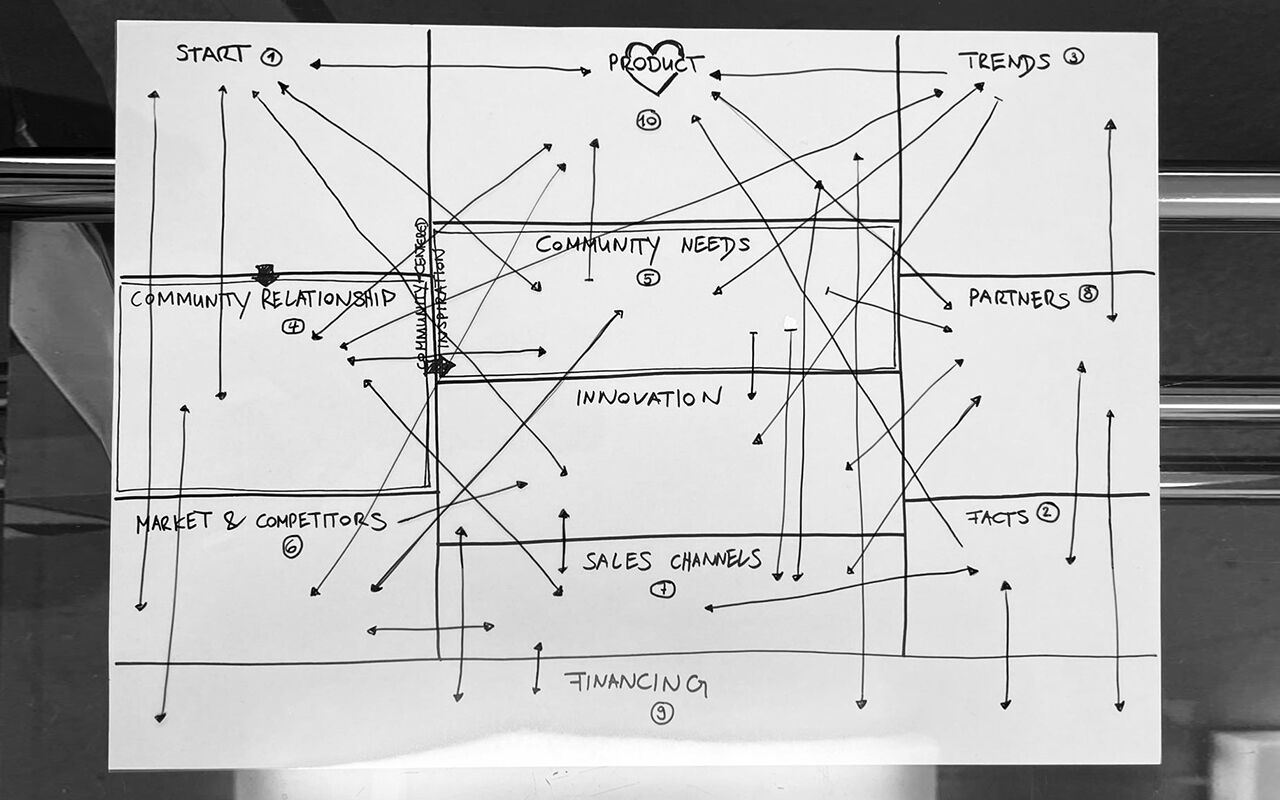 START 1
PRODUCT
10
TRENDS 3
COMMUNITY-CENTERED
INSPIRATION
COMMUNITY RELATIONSHIP
4
COMMUNITY NEEDS
5
PARTNERS 8
INNOVATION
MARKET & COMPETITORS
6
FACTS 2
SALES CHANNELS
7
FINANCING
9